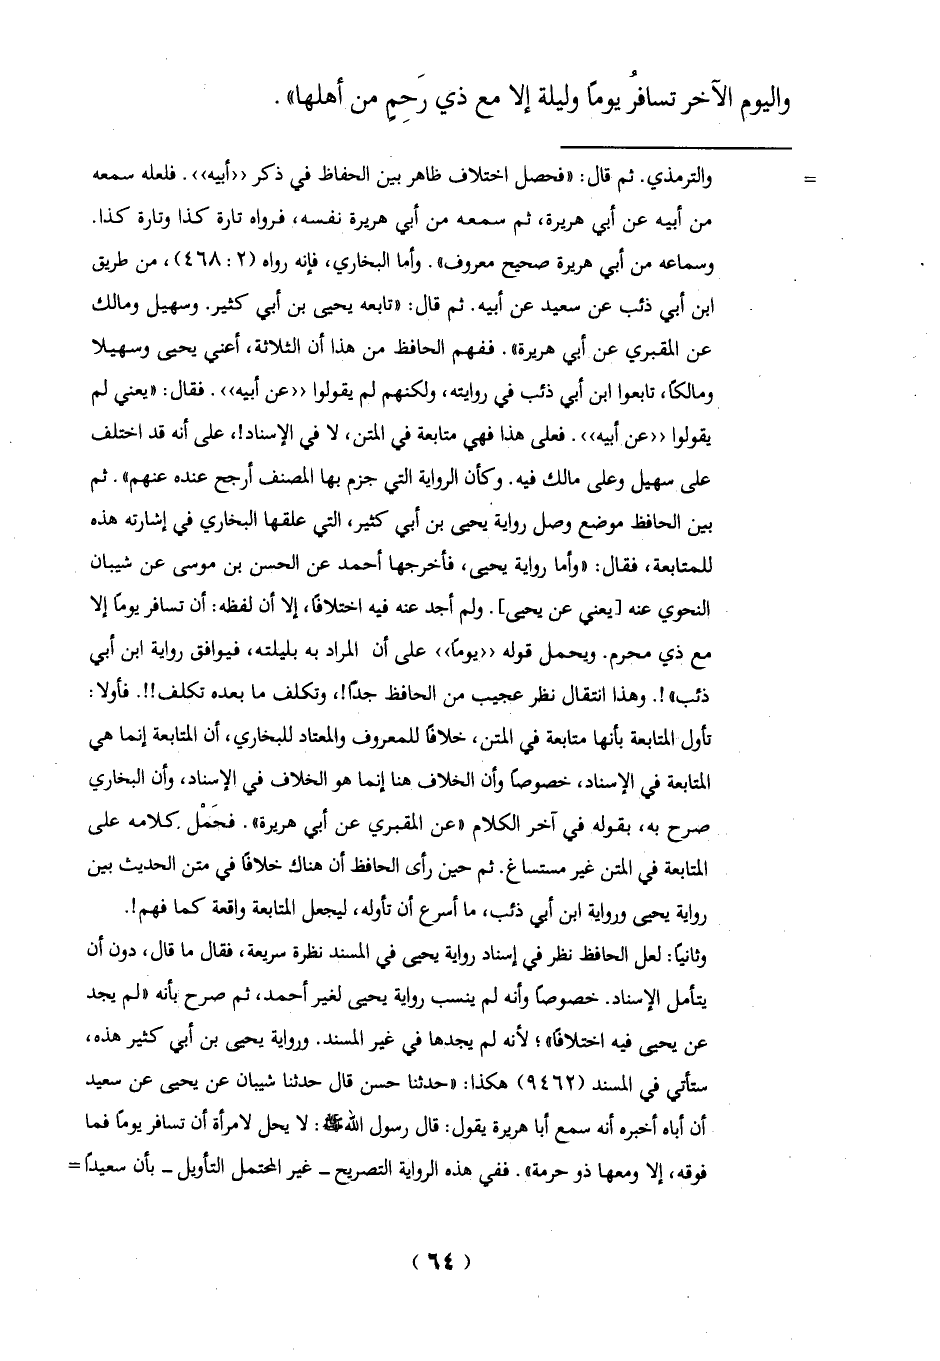 واليوم الآخر تسافرُ يومًا وليلة إلا مع ذي رَحِمٍ من أهلها» .
= والترمذي. ثم قال: «فحصل اختلاف ظاهر بين الحفاظ في ذكر ‹‹أبيه›› . فلعله سمعه
من أبيه عن أبي هريرة، ثم سمعه من أبي هريرة نفسه، فرواه تارة كذا وتارة كذا.
وسماعه من أبي هريرة صحيح معروف» . وأما البخاري، فإنه رواه (٢ : ٤٦٨) ، من طريق
ابن أبي ذئب عن سعيد عن أبيه. ثم قال: «تابعه يحيى بن أبي كثير. وسهيل ومالك
عن المقبري عن أبي هريرة» . ففهم الحافظ من هذا أن الثلاثة، أعني يحيى وسهيلا
ومالكًا، تابعوا ابن أبي ذئب في روايته، ولكنهم لم يقولوا ‹‹عن أبيه›› . فقال: «يعني لم
يقولوا ‹‹عن أبيه›› . فعلى هذا فهي متابعة في المتن، لا في الإسناد!، على أنه قد اختلف
على سهيل وعلى مالك فيه. وكأن الرواية التي جزم بها المصنف أرجح عنده عنهم» . ثم
بين الحافظ موضع وصل رواية يحيى بن أبي كثير، التي علقها البخاري في إشارته هذه
للمتابعة، فقال: «وأما رواية يحيى، فأخرجها أحمد عن الحسن بن موسى عن شيبان
النحوي عنه [يعني عن يحيى] . ولم أجد عنه فيه اختلافًا، إلا أن لفظه: أن تسافر يومًا إلا
مع ذي محرم. ويحمل قوله ‹‹يومًا›› على أن المراد به بليلته، فيوافق رواية ابن أبي
ذئب» !. وهذا انتقال نظر عجيب من الحافظ جدًا!، وتكلف ما بعده تكلف!!. فأولا:
تأول المتابعة بأنها متابعة في المتن، خلافًا للمعروف والمعتاد للبخاري، أن المتابعة إنما هي
المتابعة في الإسناد، خصوصًا وأن الخلاف هنا إنما هو الخلاف في الإسناد، وأن البخاري
صرح به، بقوله في آخر الكلام «عن المقبري عن أبي هريرة» . فحَمْل كلامه على
المتابعة في المتن غير مستساغ. ثم حين رأى الحافظ أن هناك خلافًا في متن الحديث بين
رواية يحيى ورواية ابن أبي ذئب، ما أسرع أن تأوله، ليجعل المتابعة واقعة كما فهم!.
وثانيًا: لعل الحافظ نظر في إسناد رواية يحيى في المسند نظرة سريعة، فقال ما قال، دون أن
يتأمل الإسناد. خصوصًا وأنه لم ينسب رواية يحيى لغير أحمد، ثم صرح بأنه «لم يجد
عن يحيى فيه اختلافًا» ؛ لأنه لم يجدها في غير المسند. ورواية يحيى بن أبي كثير هذه،
ستأتي في المسند (٩٤٦٢) هكذا: «حدثنا حسن قال حدثنا شيبان عن يحيى عن سعيد
أن أباه أخبره أنه سمع أبا هريرة يقول: قال رسول الله ﷺ : لا يحل لامرأة أن تسافر يومًا فما
فوقه، إلا ومعها ذو حرمة» . ففي هذه الرواية التصريح – غير المحتمل التأويل – بأن سعيدًا =
( ٦٤ )